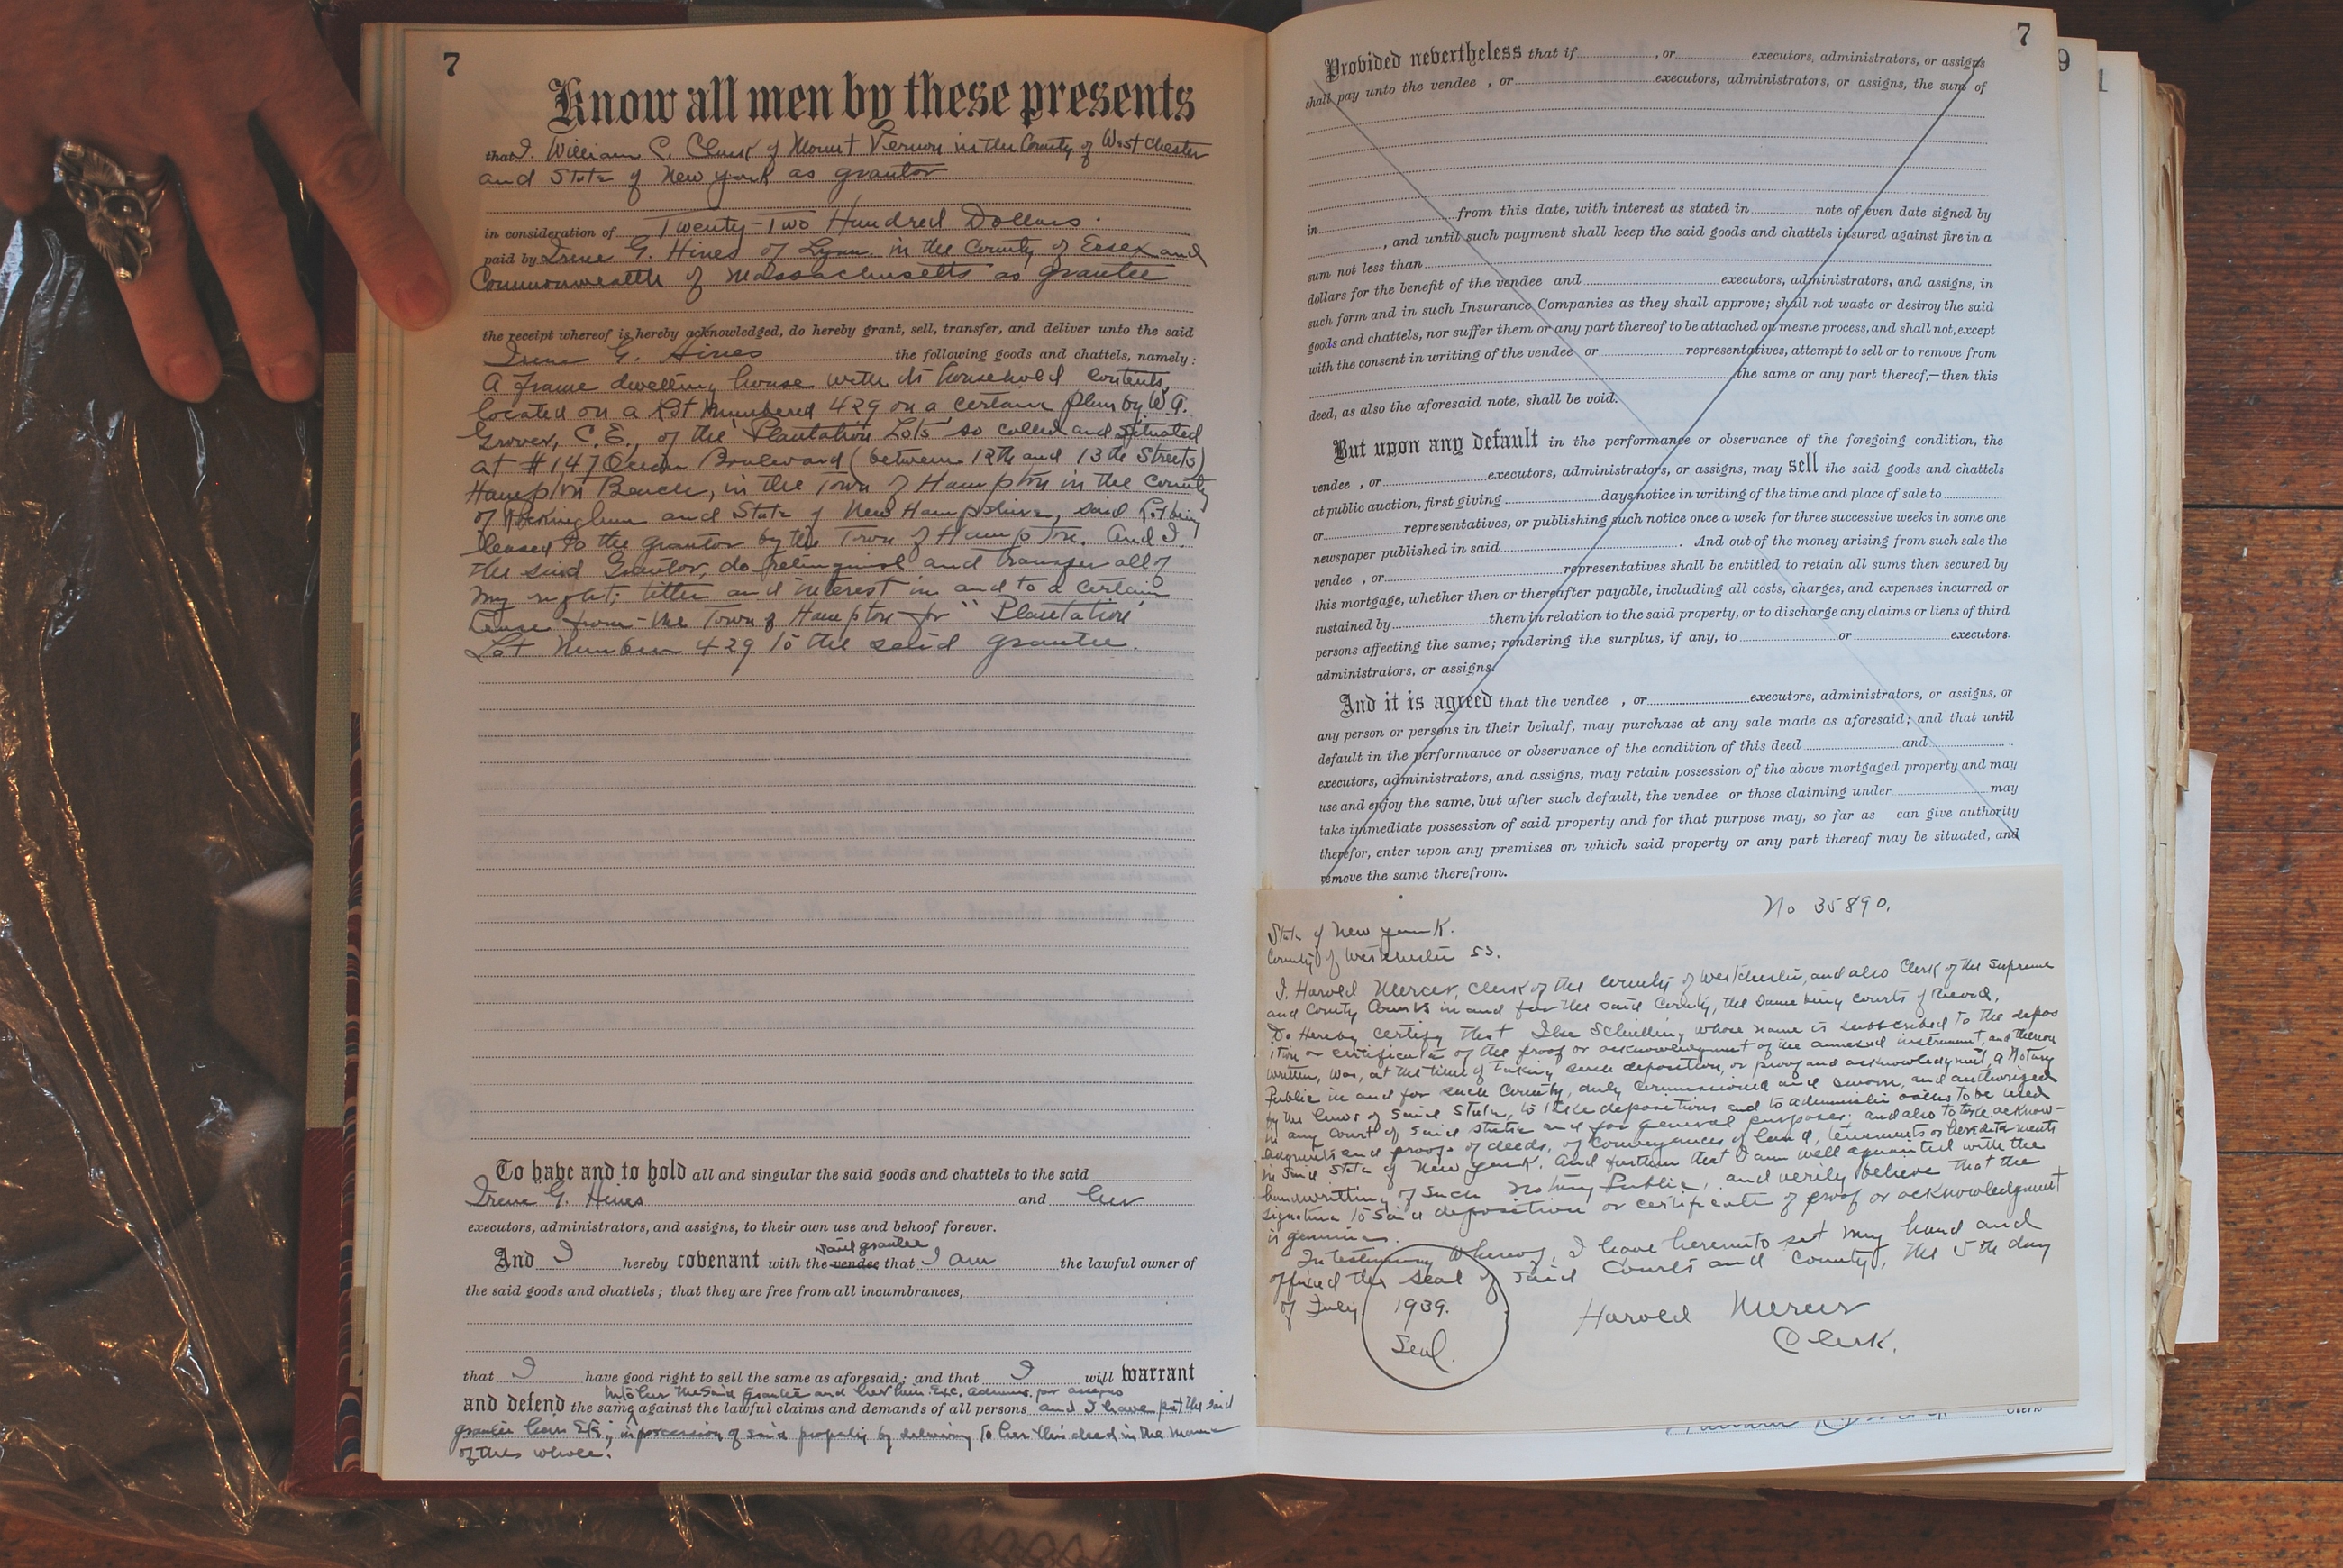 7
Know all men by these presents
that I. William C. Clark of Mount Vernon in the County of Westchester
and State of New York as grantor
in consideration of Twenty-Two Hundred Dollars.
paid by Irene G. Hines of Lynn in the County of Essex and
Commonwealth of Massachusetts as grantee
the receipt whereof is hereby acknowledged, do hereby grant, sell, transfer, and deliver unto the said
Irene G. Hines the following goods and chattels, namely:
A frame dwelling house with its household contents,
located on a Lot Numbered 429 on a certain plan by W.A.
Grover, C.E., of the 'Plantation Lots' so called and situated
at #147 Ocean Boulevard (between 12th and 13th Streets)
Hampton Beach, in the Town of Hampton in the County
of Rockingham and State of New Hampshire, said Lot being
leased to the grantor by the Town of Hampton. And I.
the said Grantor, do relinquish and transfer all of
my right, title and interest in and to a certain
Lease from the Town of Hampton for "Plantation"
Lot Number 429 to the said grantee.
To have and to hold all and singular the said goods and chattels to the said
Irene G. Hines and her
executors, administrators, and assigns, to their own use and behoof forever.
said grantee
And I hereby covenant with the vendee that I am the lawful owner of
the said goods and chattels; that they are free from all incumbrances,
that I have good right to sell the same as aforesaid; and that I will warrant
into her the said grantee and her heirs. Exc. Admns. or assigns
and defend the same against the lawful claims and demands of all persons and I have put the said
grantee heirs Etc., in possession of said property by delivering to her this deed in the name
of the whole.
7
9
1
Provided nevertheless that if , or executors, administrators, or assigns
shall pay unto the vendee , or executors, administrators, or assigns, the sum of
in from this date, with interest as stated in note of even date signed by
, and until such payment shall keep the said goods and chattels insured against fire in a
sum not less than
dollars for the benefit of the vendee and executors, administrators, and assigns, in
such form and in such Insurance Companies as they shall approve; shall not waste or destroy the said
goods and chattels, nor suffer them or any part thereof to be attached on mesne process, and shall not, except
with the consent in writing of the vendee or representatives, attempt to sell or to remove from
the same or any part thereof,—then this
deed, as also the aforesaid note, shall be void.
But upon any default in the performance or observance of the foregoing condition, the
vendee , or executors, administrators, or assigns, may sell the said goods and chattels
at public auction, first giving days notice in writing of the time and place of sale to
or representatives, or publishing such notice once a week for three successive weeks in some one
newspaper published in said . And out of the money arising from such sale the
vendee , or representatives shall be entitled to retain all sums then secured by
this mortgage, whether then or thereafter payable, including all costs, charges, and expenses incurred or
sustained by them in relation to the said property, or to discharge any claims or liens of third
persons affecting the same; rendering the surplus, if any, to or executors.
administrators, or assigns.
And it is agreed that the vendee , or executors, administrators, or assigns, or
any person or persons in their behalf, may purchase at any sale made as aforesaid; and that until
default in the performance or observance of the condition of this deed and
executors, administrators, and assigns, may retain possession of the above mortgaged property and may
use and enjoy the same, but after such default, the vendee or those claiming under may
take immediate possession of said property and for that purpose may, so far as can give authority
therefor, enter upon any premises on which said property or any part thereof may be situated, and
remove the same therefrom.
No 35890.
State of New York.
County of Westchester ss.
I. Harold Mercer, clerk of the county of Westchester, and also Clerk of the Supreme
and County Courts in and for the said County, the same being courts of Record,
Do Hereby certify that Ilse Schilling whose name is subscribed to the depos
ition or certificate of the proof or acknowledgment of the annexed instrument, and thereon
written, was, at the time of taking such deposition, or proof and acknowledgment, a Notary
Public in and for such County, duly commissioned and sworn, and authorized
by the laws of said State, to take depositions and to administer oaths to be used
in any court of said State and for general purposes; and also to take acknow-
ledgments and proofs of deeds, of conveyances of land, tenements or hereditaments
in said State of New York. And further that I am well aquainted with the
handwritting of such Notary Public, and verily believe that the
signature to said deposition or certificate of proof or acknowledgment
is genuine.
In testimony Whereof, I have hereunto set my hand and
affixed the seal of said Courts and County, the 5th day
of July 1939.
Harold Mercer
Seal.
Clerk.
Clerk